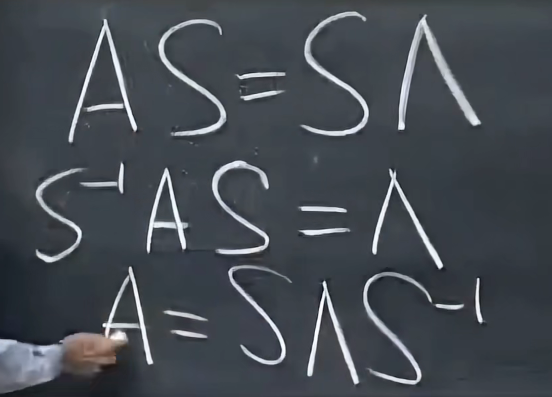 AS = SΛ
S⁻¹AS = Λ
A = SΛS⁻¹